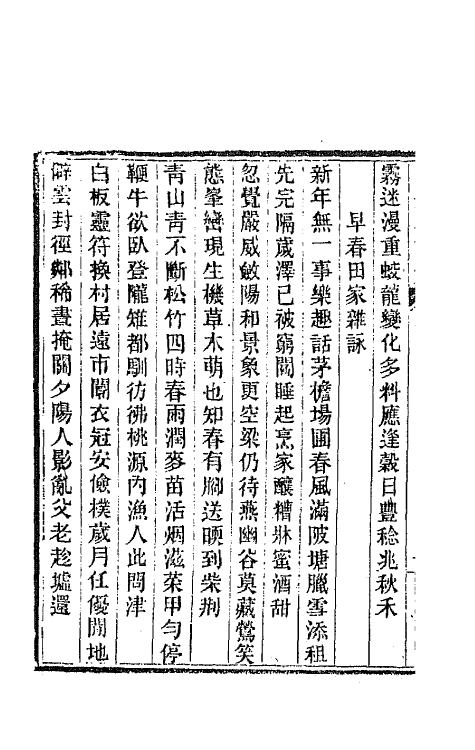 霧迷漫重蛟龍變化多料應逢穀日豐稔兆秋禾
早春田家雜詠
新年無一事樂趣話茅檐場圃春風滿陂塘臘雪添租
先完隔歲澤已被窮閻睡起烹家釀糟牀蜜酒甜
忽覺嚴威斂陽和景象更空梁仍待燕幽谷莫藏鶯笑
態峯巒現生機草木萌也知春有脚送暖到柴荆
青山青不斷松竹四時春雨潤麥苗活烟滋菜甲勻停
鞭牛欲臥登隴雉都馴彷彿桃源內漁人此問津
白板靈符換村居遠市闤衣冠安儉樸歲月任優閒地
僻雲封徑鄰稀晝掩關夕陽人影亂父老趁墟還